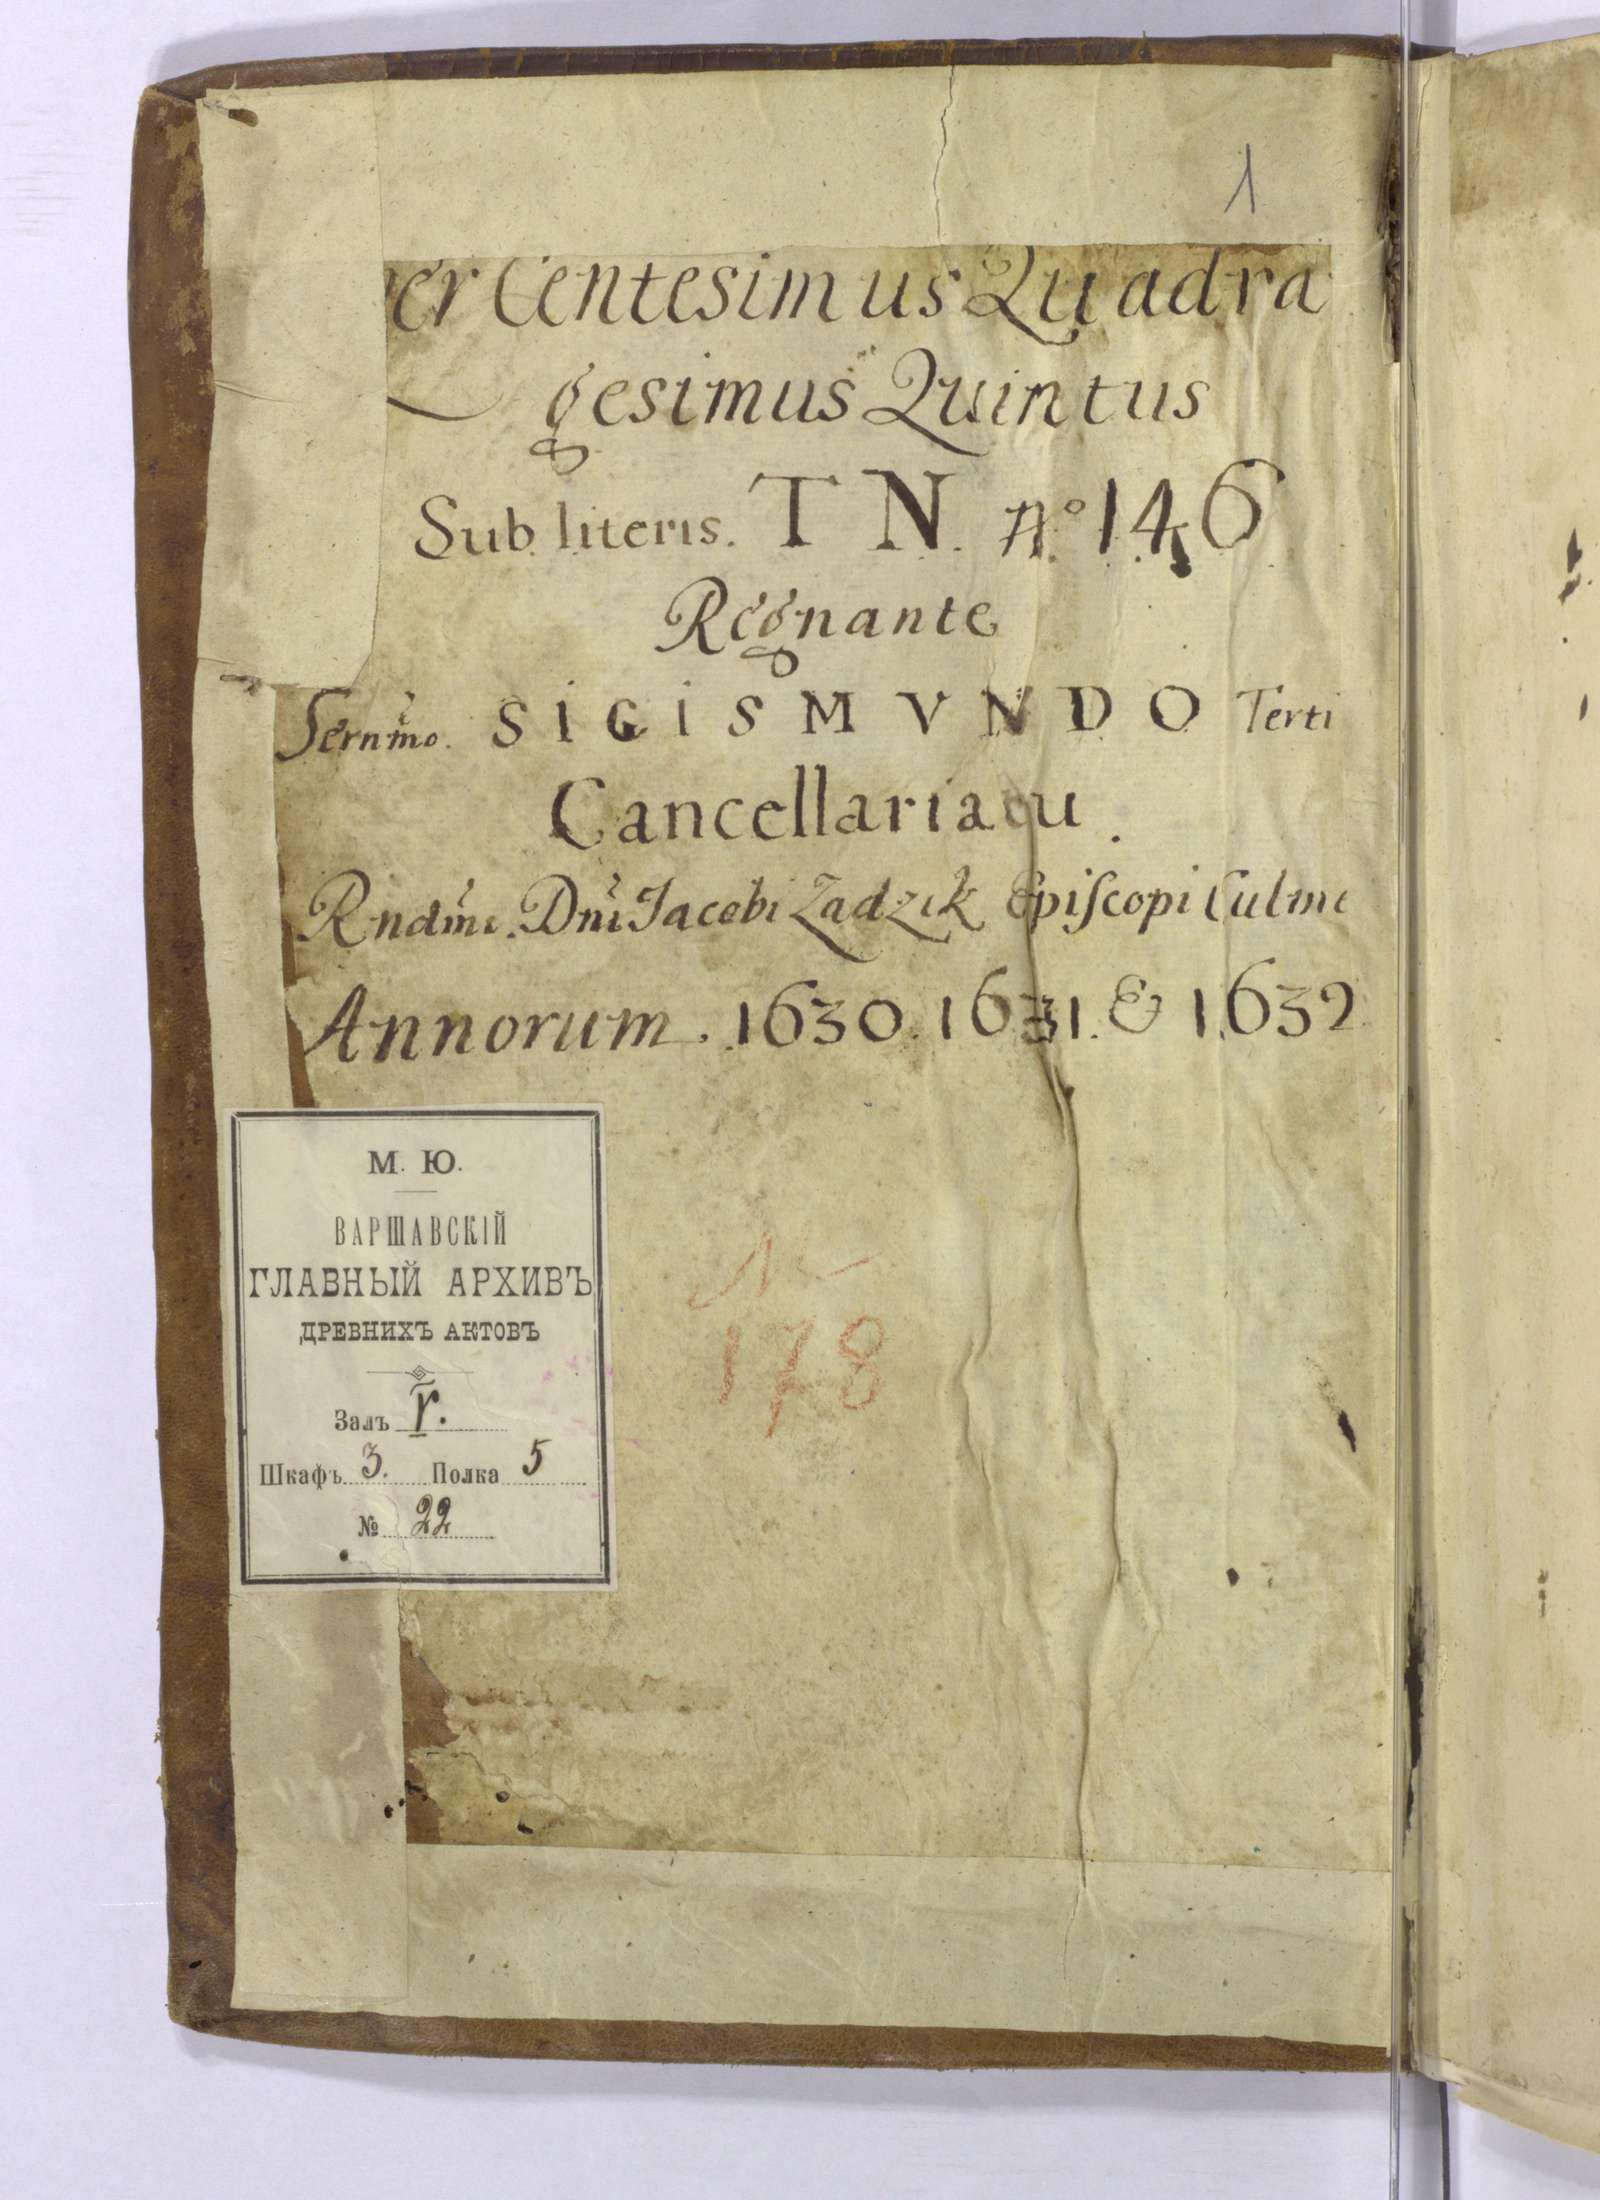 1
er Centesimus Quadra
gesimus Quintus
Sub literis. T N. No 146
Regnante
Sernmo. SIGISMVNDO Terti
Cancellariatu.
Rndmi. Dni Jacobi Zadzik Episcopi Culme
Annorum. 1630. 1631. & 1632
М. Ю.
ВАРШАВСКІЙ
ГЛАВНЫЙ АРХИВЪ
ДРЕВНИХЪ АКТОВЪ
Залъ V.
Шкафъ 3. Полка 5
№ 22
178